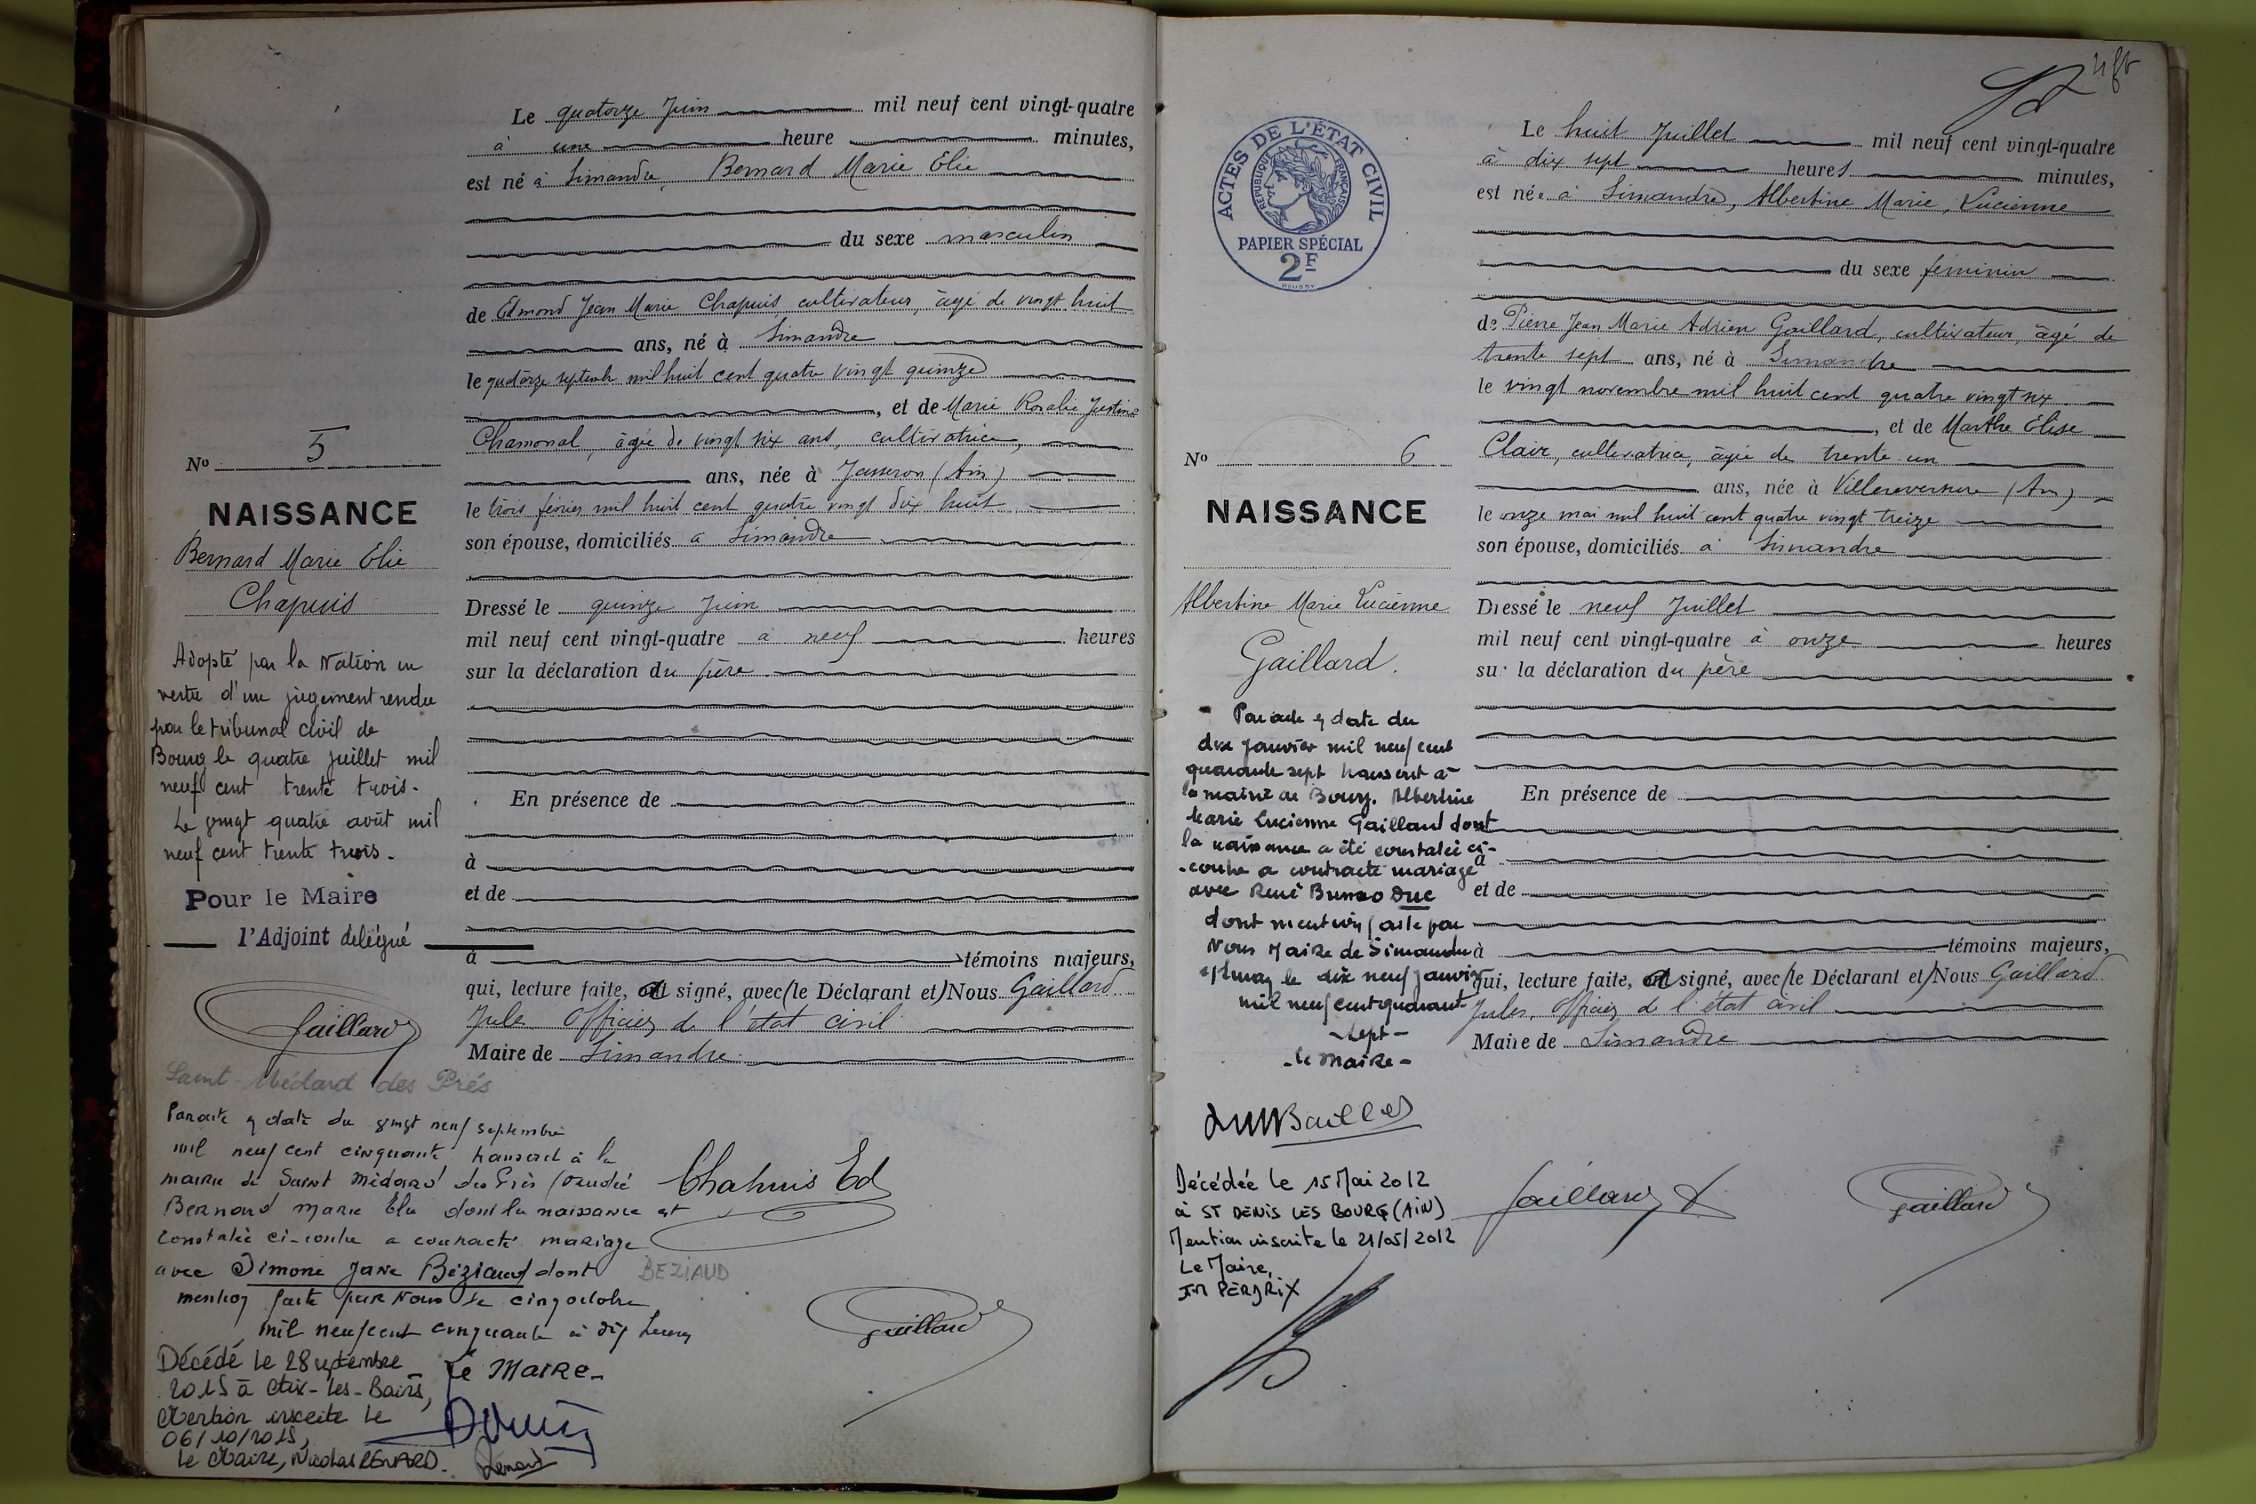 Le quatorze Juin mil neuf cent vingt-quatre
à une heure minutes,
est né à Simandre, Bernard Marie Elie
du sexe masculin
de Edmond Jean Marie Chapuis, cultivateur, âgé de vingt huit
ans, né à Simandre
le quatorze septembre mil huit cent quatre vingt quinze
, et de Marie Rosalie Justine
Chamonal, âgée de vingt six ans, cultivatrice,
ans, née à Jasseron (Ain)
le trois février mil huit cent quatre vingt dix huit
son épouse, domiciliés à Simandre
Dressé le quinze Juin
mil neuf cent vingt-quatre à neuf heures
sur la déclaration du père
En présence de
à
et de
à témoins majeurs,
qui, lecture faite, ont signé, avec (le Déclarant et) Nous Gaillard
Jules Officier de l'état civil
Maire de Simandre
Chapuis Ed
Gaillard
No 5
NAISSANCE
Bernard Marie Elie
Chapuis
Adopté par la Nation en
vertu d'un jugement rendu
par le tribunal civil de
Bourg le quatre juillet mil
neuf cent trente trois.
Le vingt quatre août mil
neuf cent trente trois.
Pour le Maire
l'Adjoint délégué
Gaillard
Saint-Médard des Prés
Par acte en date du vingt neuf septembre
mil neuf cent cinquante transcrit à la
mairie de Saint Médard des Près (Vendée
Bernard Marie Elie dont la naissance est
constatée ci-contre a contracté mariage
avec Simone Jane Béziaud dont
BEZIAUD
mention faite par Nous le cinq octobre
mil neuf cent cinquante à dix heures
Le Maire
Décédé le 28 septembre
2015 à Aix-les-Bains,
Mention inscrite le
06/10/2015,
Le Maire, Nicolas RENARD.
ACTES DE L'ÉTAT CIVIL
RÉPUBLIQUE FRANÇAISE
PAPIER SPÉCIAL
2F
Le huit Juillet mil neuf cent vingt-quatre
à dix sept heures minutes,
est née à Simandre, Albertine Marie, Lucienne
du sexe féminin
de Pierre Jean Marie Adrien Gaillard, cultivateur, âgé de
trente sept ans, né à Simandre
le vingt novembre mil huit cent quatre vingt six
, et de Marthe Elise
Clair, cultivatrice, âgée de trente un
ans, née à Villereversure (Ain)
le onze mai mil huit cent quatre vingt treize
son épouse, domiciliés à Simandre
Dressé le neuf Juillet
mil neuf cent vingt-quatre à onze heures
sur la déclaration du père
En présence de
à
et de
à témoins majeurs,
qui, lecture faite, ont signé, avec (le Déclarant et) Nous Gaillard
Jules, Officier de l'état civil
Maire de Simandre
Gaillard
Gaillard
No 6
NAISSANCE
Albertine Marie Lucienne
Gaillard.
Par acte en date du
dix janvier mil neuf cent
quarante sept transcrit à
la mairie de Bourg. Albertine
Marie Lucienne Gaillard dont
la naissance a été constatée ci-
-contre a contracté mariage
avec René Bruno Duc
dont mention faite par
Nous Maire de Simandre
s/Suran le dix neuf janvier
mil neuf cent quarante
-sept-
-le Maire-
Décédée le 15 Mai 2012
à ST DENIS LES BOURG (AIN)
Mention inscrite le 21/05/2012
Le Maire,
JM PERDRIX